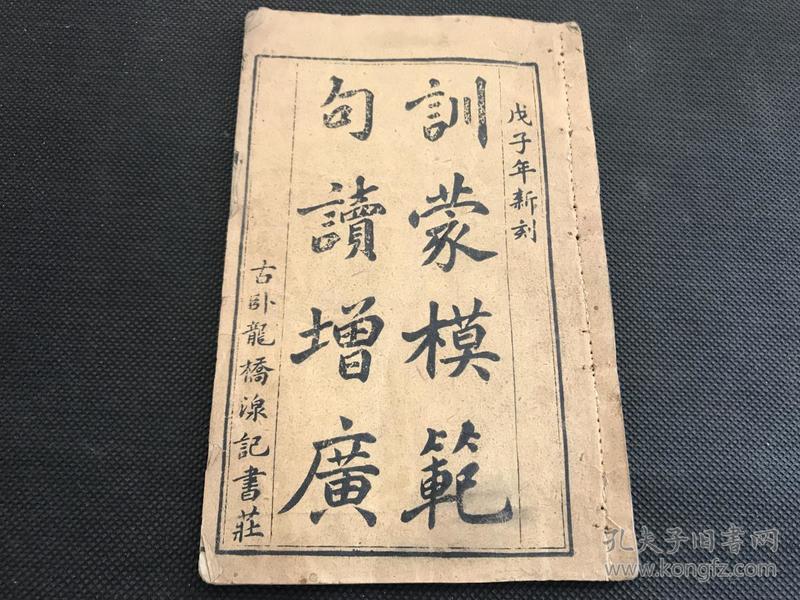 戊子年新刻
訓蒙模範
句讀增廣
古卧龍橋湶記書莊
孔夫子旧书网
www.kongfz.com